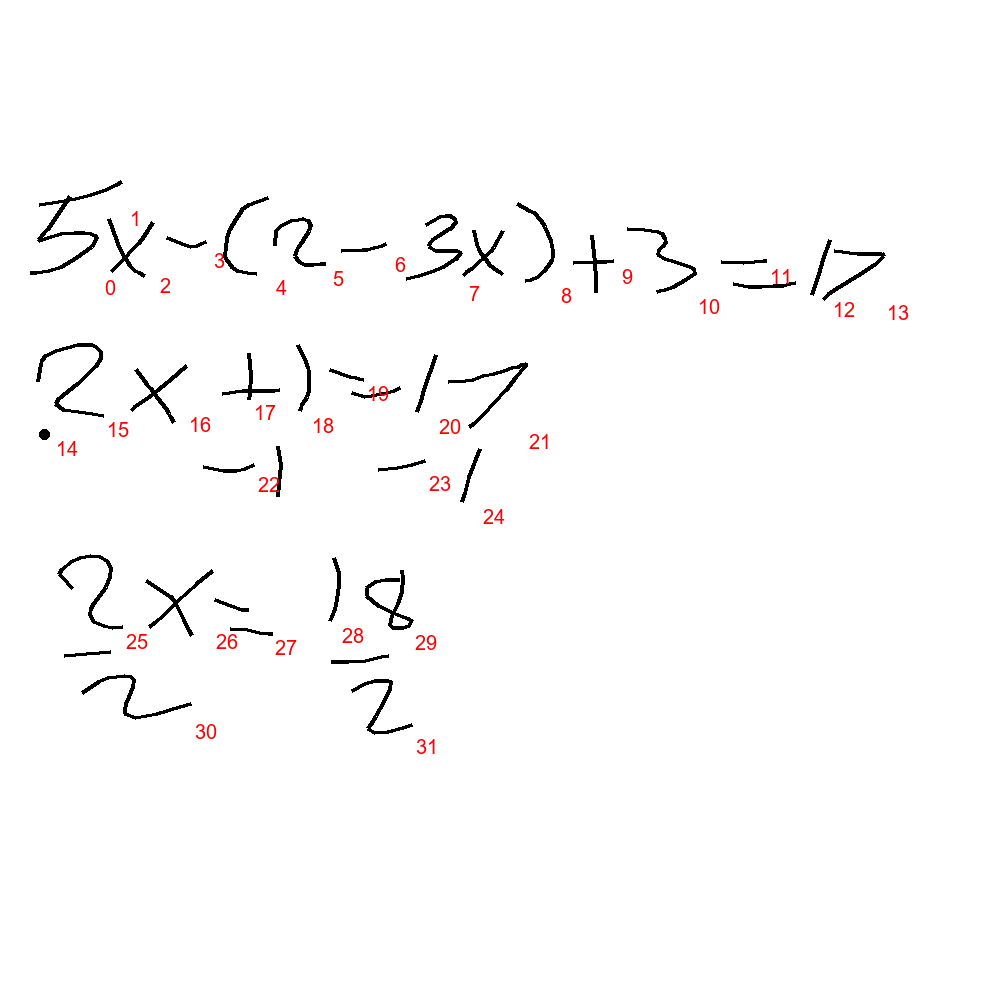 5x - (2 - 3x) + 3 = 17
0 1 2 3 4 5 6 7 8 9 10 11 12 13
2x + 1 = 17
14 15 16 17 18 19 20 21
- 1 - 1
22 23 24
2x = 18
25 26 27 28 29
2 2
30 31